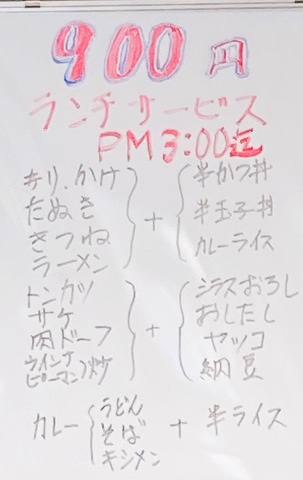 900円
ランチサービス
PM3:00迄
もり、かけ
たぬき
きつね
ラーメン
+
半かつ丼
半玉子丼
カレーライス
トンカツ
サケ
肉ドーフ
ウインナ
ピーマン炒
+
シラスおろし
おしたし
ヤッコ
納豆
カレー
うどん
そば
キシメン
+
半ライス